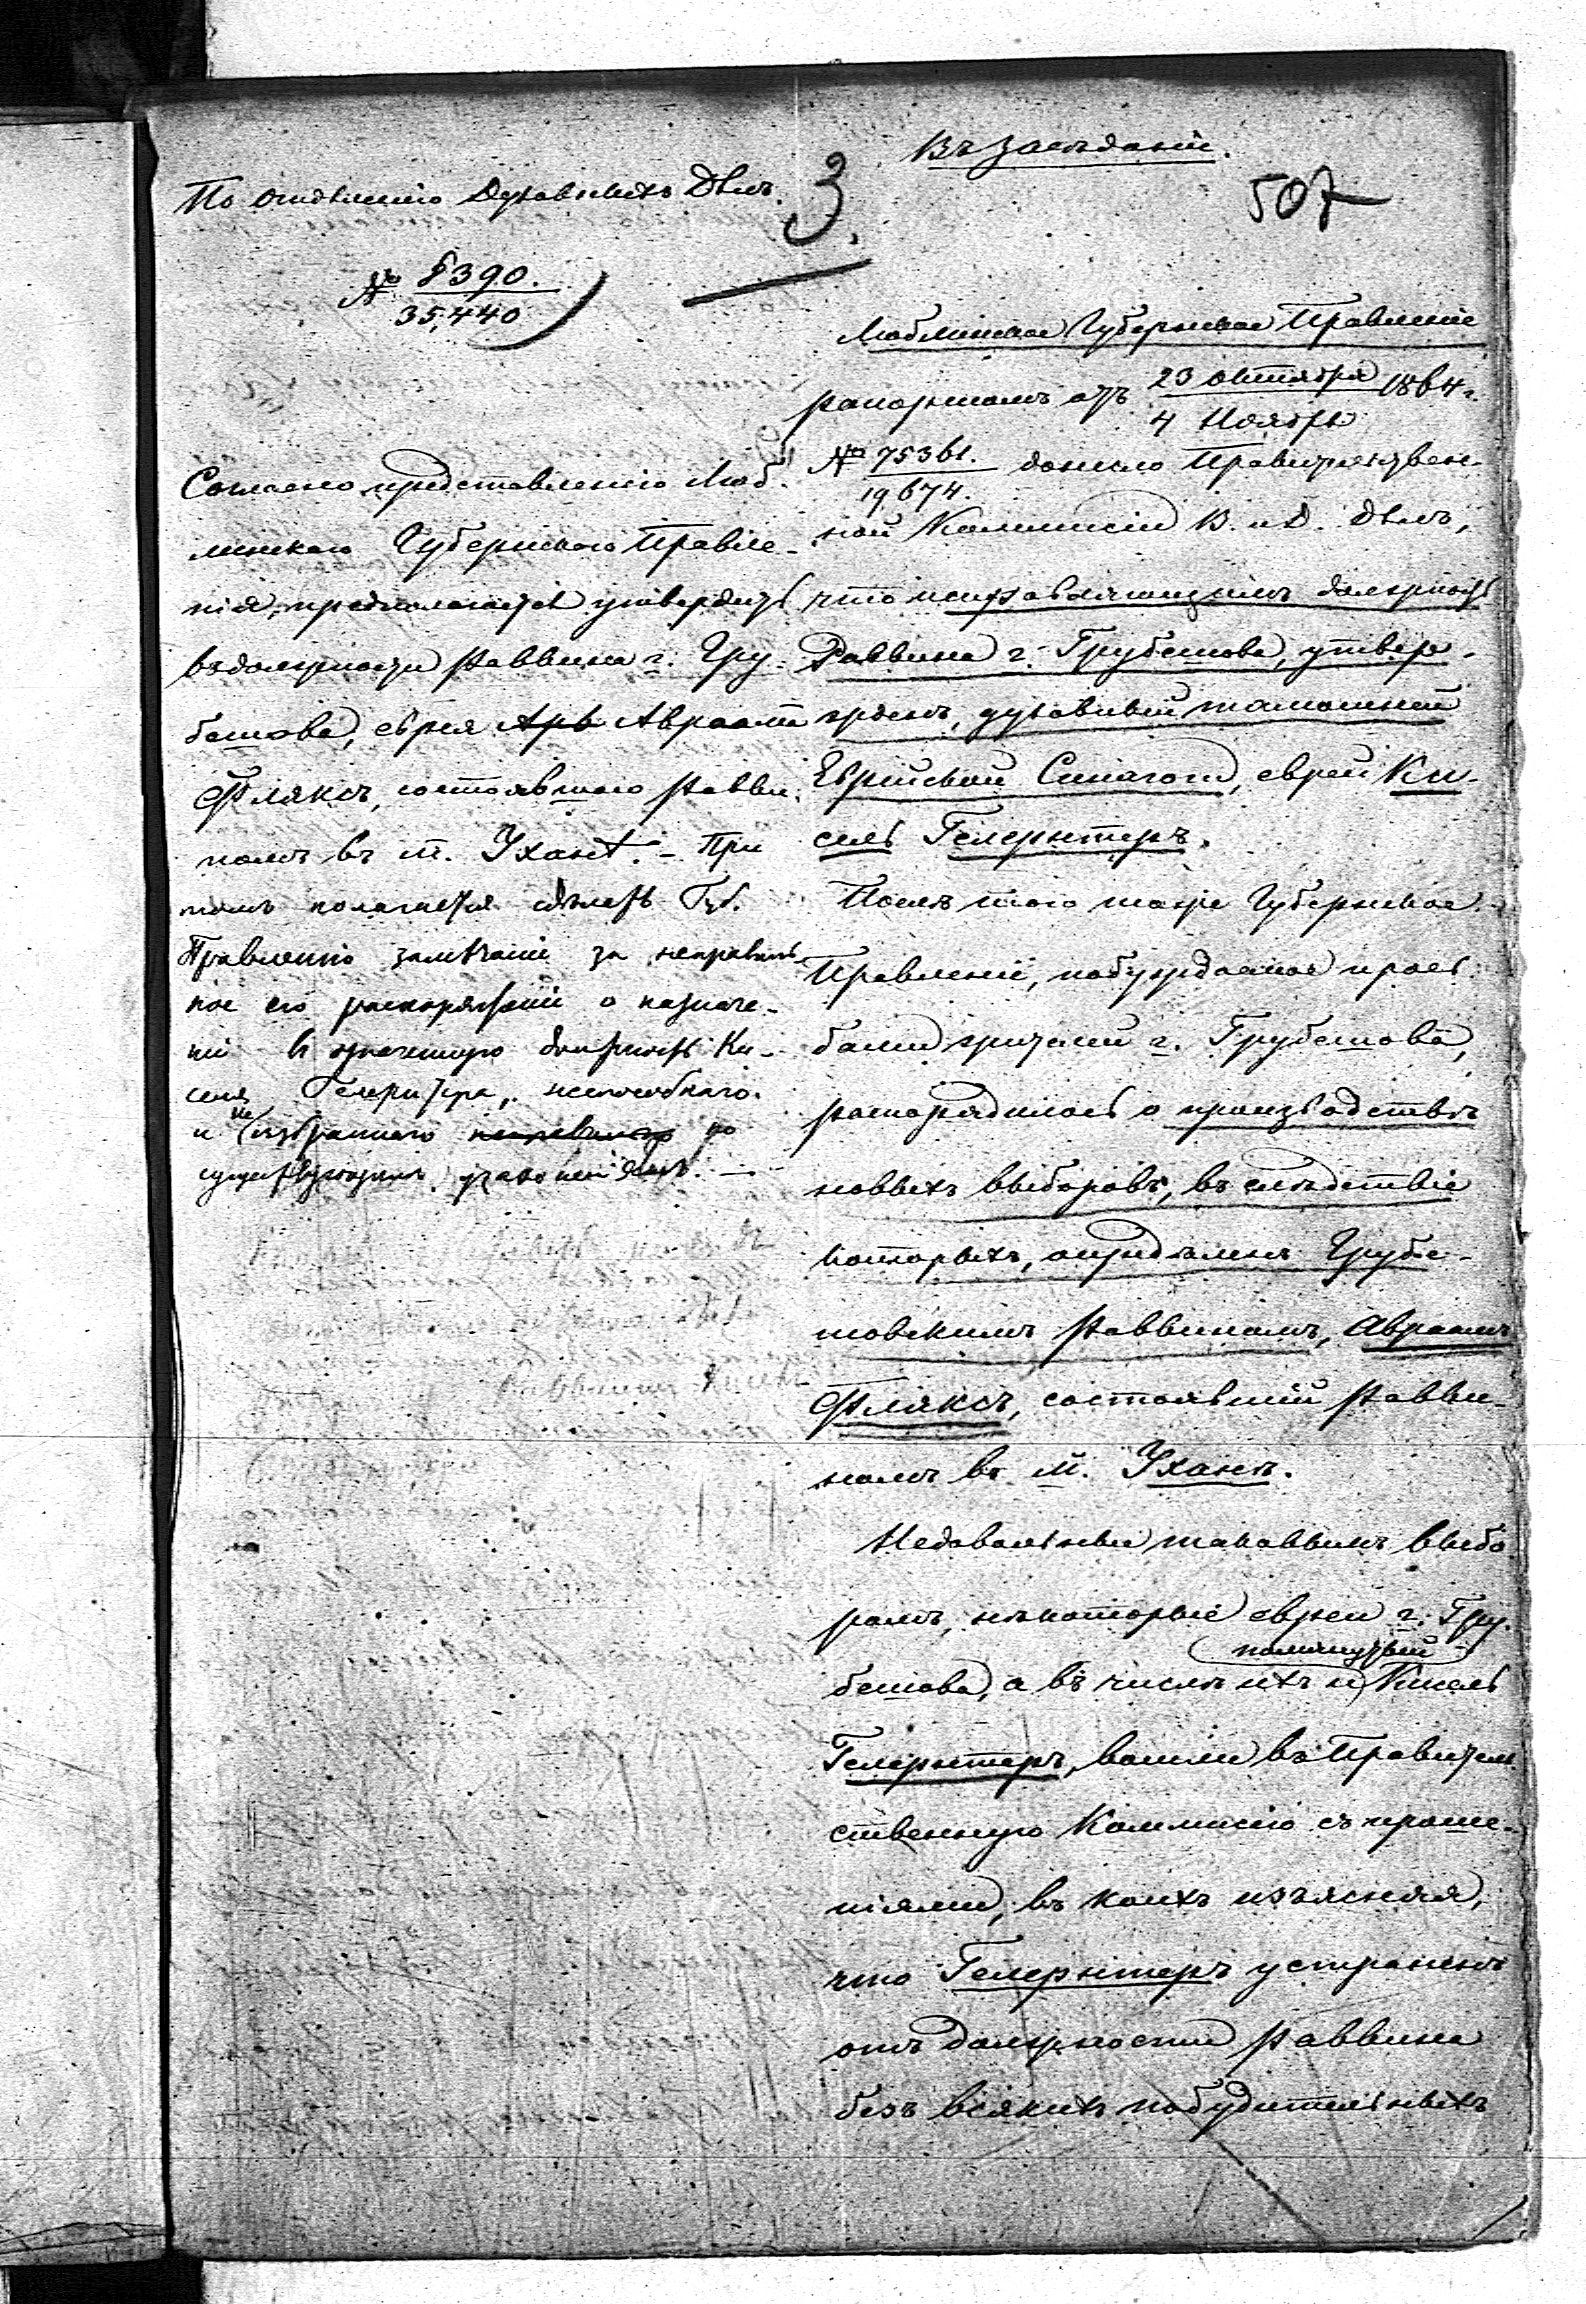 Въ засѣданіе.
По отдѣленію Духовныхъ Дѣлъ.
3.
507
№ 8390.
35,440
Люблинское Губернское Правленіе
рапортомъ отъ 23 Октября 1864 г.
4 Ноября
№ 75361.
19674.
донесло Правительствен-
ной Коммисіи В. и Д. Дѣлъ,
что исправляющимъ должность
Раввина г. Грубешова, утвер-
жденъ, духовный тамошней
Еврейской Синагоги, еврей Ки-
сель Гелернтеръ.
Послѣ того тоже Губернское
Правленіе, побуждаемое прось-
бами жителей г. Грубешова,
распорядилось о производствѣ
новыхъ выборовъ, въ слѣдствіе
которыхъ, опредѣленъ Грубе-
шовскимъ Раввиномъ, Авраамъ
Фляксъ, состоявшій Равви-
номъ въ м. Ухане.
Недовольные таковымъ выбо
ромъ, нѣкоторые евреи г. Гру-
бешова, а въ числѣ ихъ и помянутый Кисель
Гелернтеръ, вошли въ Правитель
ственную Коммисію съ проше-
ніями, въ коихъ изъясняя,
что Гелернтеръ устраненъ
отъ должности Раввина
безъ всякихъ побудительныхъ
Согласно представленію Люб-
линскаго Губернскаго Правле-
нія, предполагается утвердить
въ должности Раввина г. Гру-
бешова, еврея Арь Авраама
Фляксъ, состоявшаго Равви-
номъ въ м. Уханѣ. - При
томъ полагается сдѣлать Губ.
Правленію замѣчаніе за неправиль-
ное его распоряженіе о назначе-
ніи въ означенную должность Ки-
селя Гелернтера, неспособнаго
и не избраннаго по
существующимъ узаконеніямъ. —